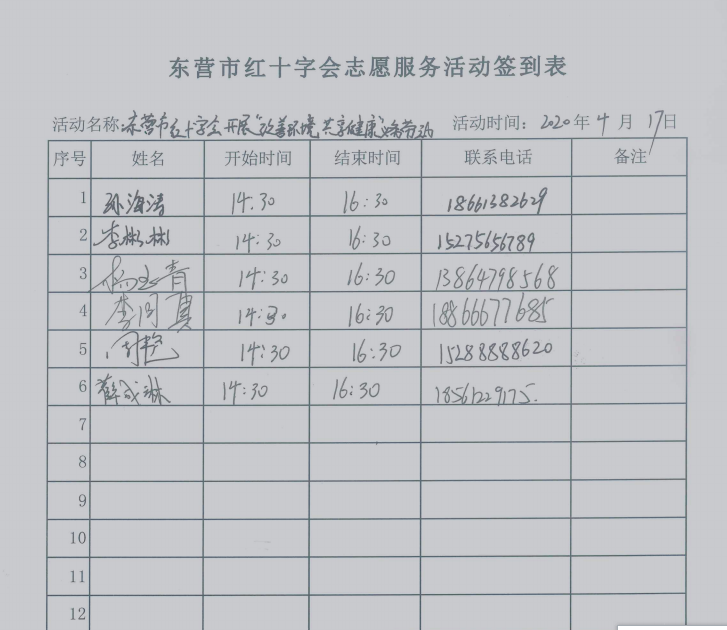 东营市红十字会志愿服务活动签到表
活动名称:东营市红十字会开展"改善环境 共享健康" 活动时间: 2020年4月17日
序号 姓名 开始时间 结束时间 联系电话 备注
1 孙海清 14:30 16:30 18661382629
2 李彬彬 14:30 16:30 15275656789
3 杨玉青 14:30 16:30 13864798568
4 李同真 14:30 16:30 18866677685
5 周艳 14:30 16:30 15288888620
6 薛成琳 14:30 16:30 18561229175.
7
8
9
10
11
12